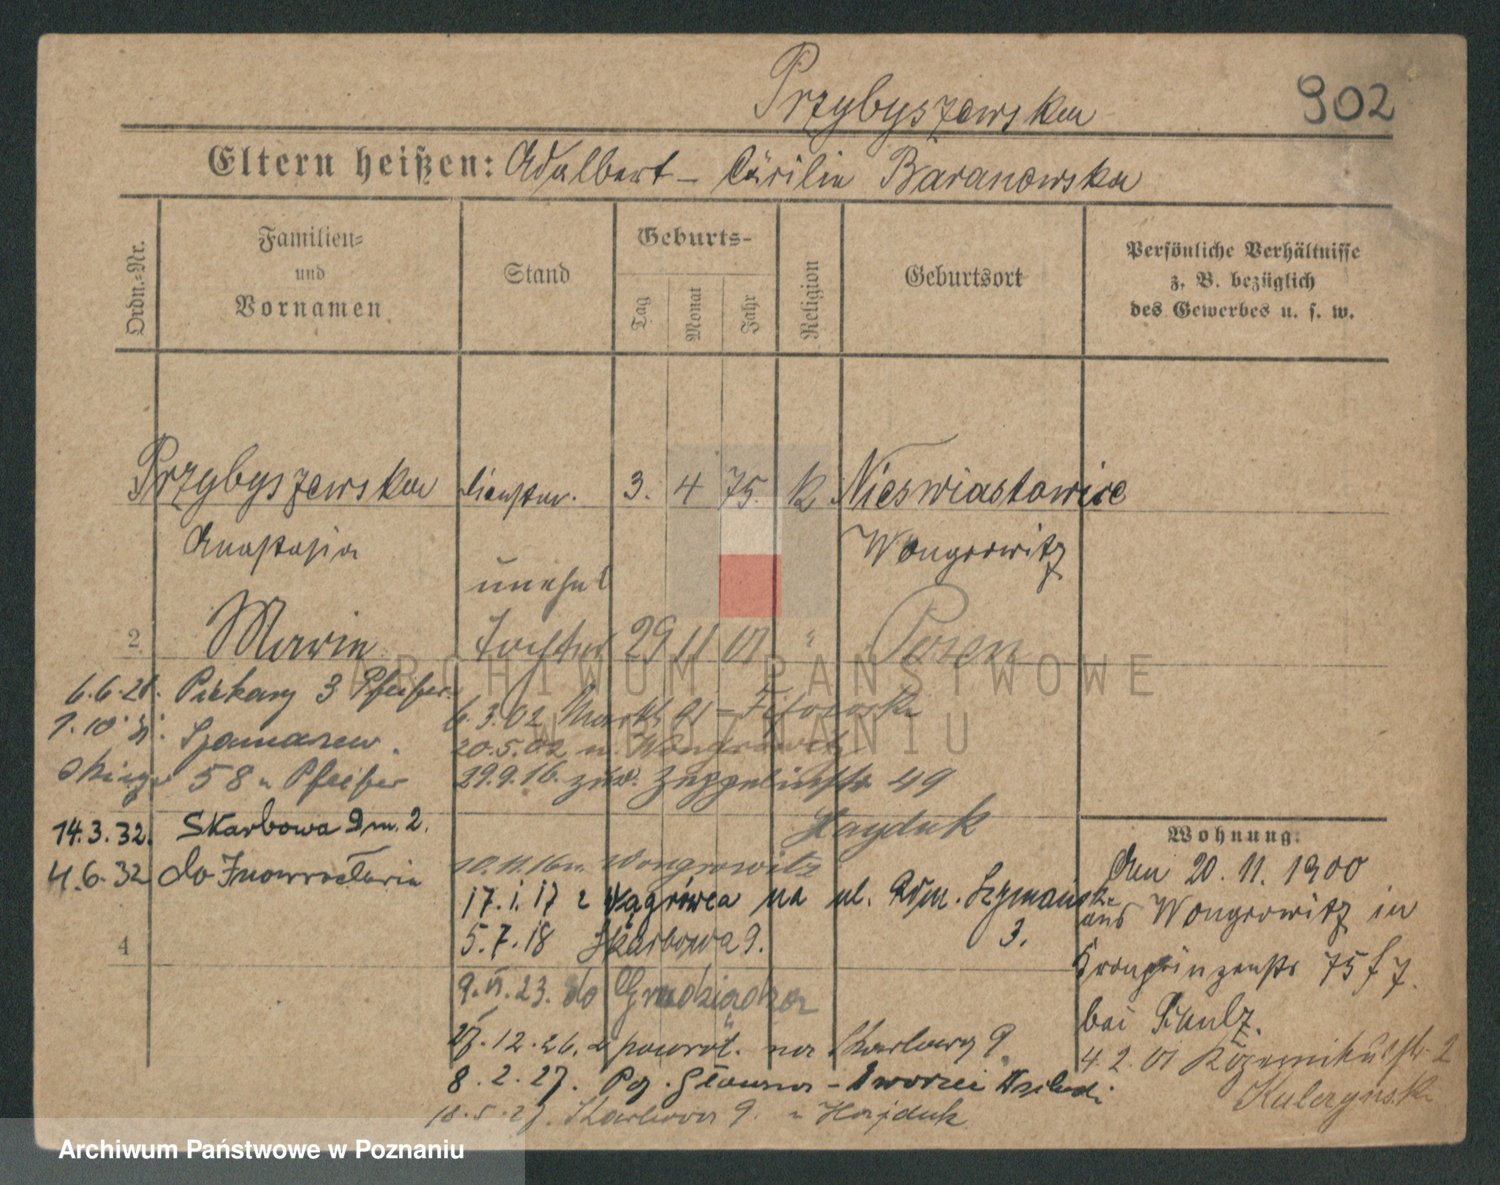 Przybyszewska 902
Eltern heißen: Adalbert – Cäcilie Baranowska
Ordn.-Nr.
Familien-
und
Vornamen
Stand
Geburts-
Tag
Monat
Jahr
Religion
Geburtsort
Persönliche Verhältnisse
z. B. bezüglich
des Gewerbes u. s. w.
Przybyszewska 3. 4 75. K Nieswiastowice
Anastasia Wongrowitz
unehel
2. Marie Tochter 29 11 01 " Posen
6.6.28. Piekary 3 Pfeifer
Szamarzew
skiego 58 u Pfeifer
14.3.32. Skarbowa 9 m. 2.
4.6.32 do Inowrocławia
4
6.3.02 Markt 91
20.5.02 n. Wongrowitz
29.9.16. zur. Zeppelinstr 49
Hayduk
10.11.16 n Wongrowitz
17.1.17 z Wągrówca na ul. Adm. Szymańsk
3.
5.7.18 Skarbowa 9.
9. 23. do Grudziądza
12.26. z powrót. na Skarbowa 9.
8.2.27. Pl. Dworzec
18.5.27. Skarbowa 9. u Hajduk
Wohnung.
Den 20.11.1900
aus Wongrowitz in
Kronprinzenstr 75 f 7.
bei
4.2.01 2
ARCHIWUM PAŃSTWOWE
W POZNANIU
Archiwum Państwowe w Poznaniu